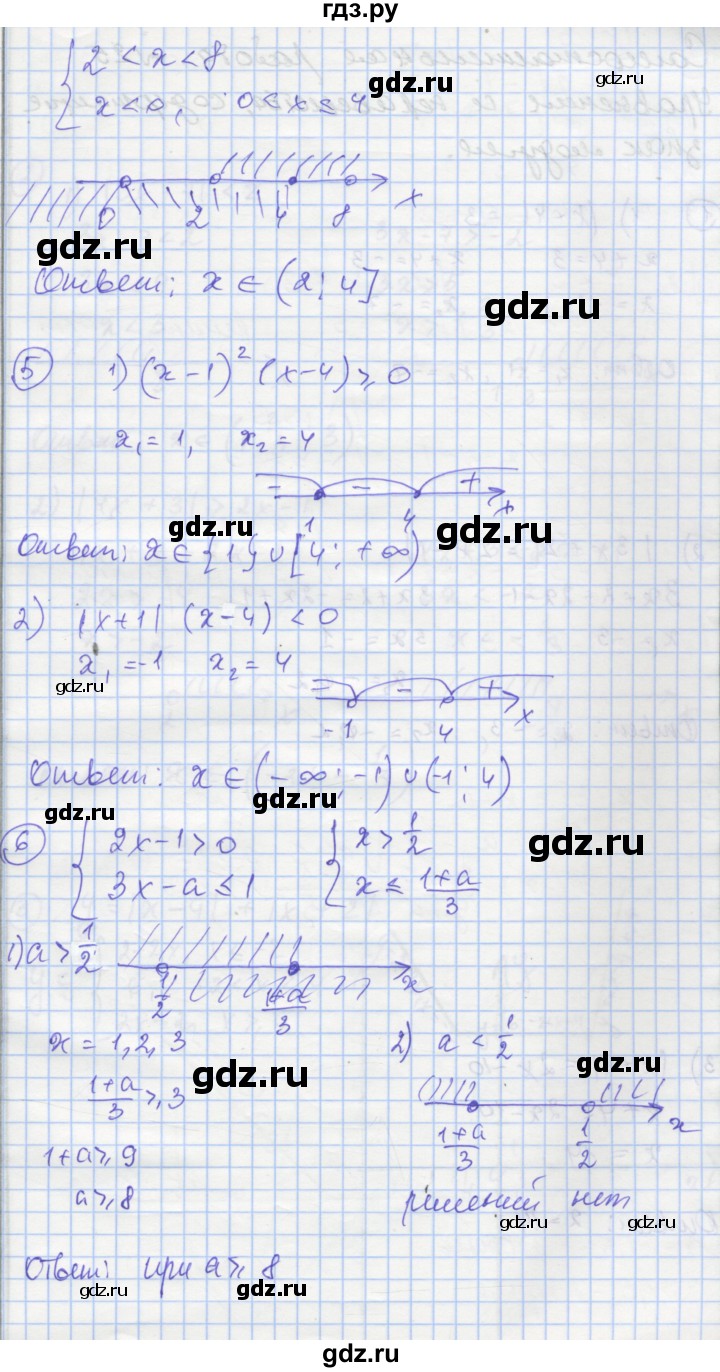 гдз.ру
2 < x < 8
x < 0, 0 < x ≤ 4
gdz.ru
0 2 4 8 x
gdz.ru
Ответ: x ∈ (2; 4]
gdz.ru
5 1) (x-1)² (x-4) ≥ 0
x₁ = 1, x₂ = 4
- - + x
1 4
gdz.ru gdz.ru
Ответ: x ∈ {1} ∪ [4; +∞)
2) |x+1| (x-4) < 0
x₁ = -1 x₂ = 4
gdz.ru
- - + x
-1 4
Ответ: x ∈ (-∞; -1) ∪ (-1; 4)
gdz.ru
6 2x-1 > 0 x > 1/2
3x-a ≤ 1 x ≤ (1+a)/3
gdz.ru gdz.ru
1) a > 1/2
1/2 (1+a)/3 x
x = 1, 2, 3 2) a < 1/2
gdz.ru gdz.ru
(1+a)/3 ≥ 3
(1+a)/3 1/2 x
1+a ≥ 9
a ≥ 8 решений нет
gdz.ru gdz.ru gdz.ru
Ответ: при a ≥ 8
gdz.ru gdz.ru